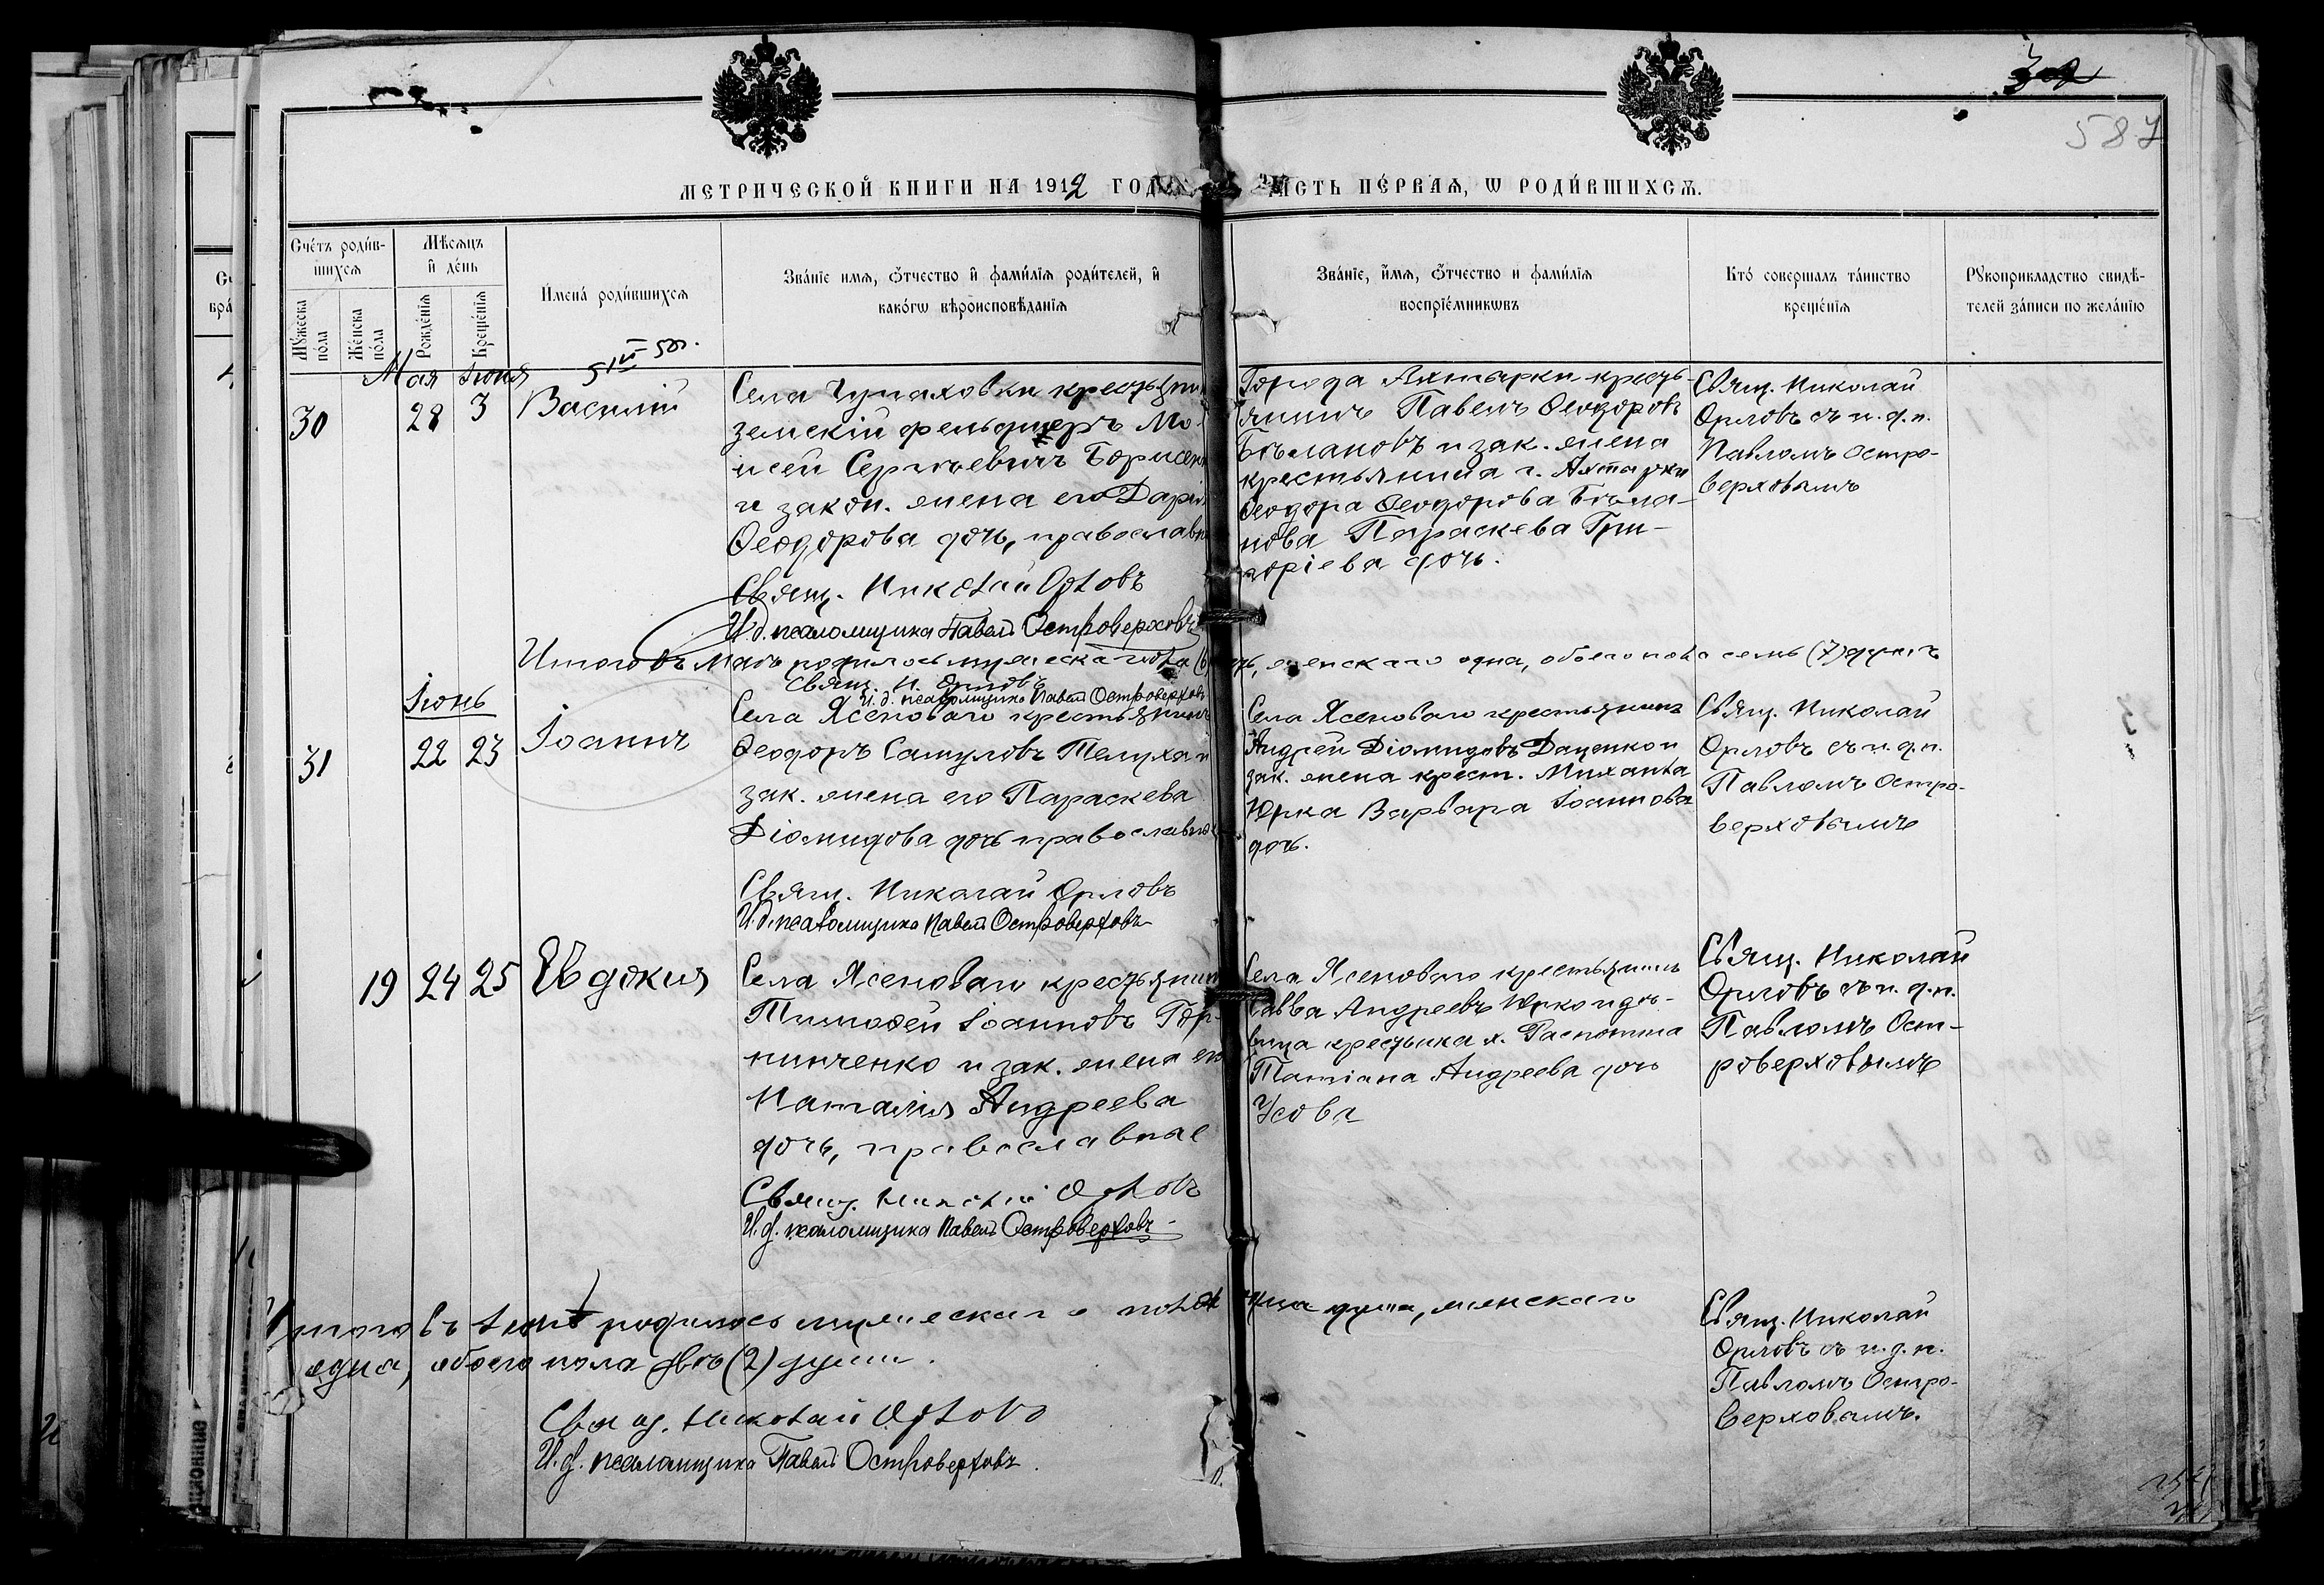 587
МЕТРИЧЕСКОЙ КНИГИ НА 1912 ГОД
ЧАСТЬ ПЕ́РВАЯ, Ѡ РОДИ́ВШИХСѦ.
Счётъ роди́в-
шихсѧ
Мѣсѧцъ
и҆ де́нь
Мꙋжеска
по́ла
Же́нска
по́ла
Рожде́нїѧ
Креще́нїѧ
И҆мена́ роди́вшихсѧ
Зва́нїе имѧ, ѻ҆́тчество и҆ фами́лїѧ роди́телей, и҆
како́гѡ вѣроисповѣ́данїѧ
Зва́нїе, и҆́мѧ, ѻ҆́тчество и фами́лїѧ
воспрїе́мникѡвъ
Кто́ совершалъ та́инство
креще́нїѧ
Рꙋкоприкладство свидѣ-
телей за́писи по жела́нїю
Мая Іюня
30
28 3 Василій
Села Чупаховки крестьянин
земскій фельдшеръ Мо-
исей Сергѣевичъ Борисен
и закон. жена его Дарія
Ѳеодорова дочь, православн
Свящ. Николай Орловъ
И. д. псаломщика Павелъ Островерховъ
Города Ахтырки кресть-
янинъ Павелъ Ѳеодоровъ
Бѣлановъ и зак. жена
крестьянина г. Ахтырки
Ѳеодора Ѳеодорова Бѣла-
нова Параскева Гри-
горіева дочь.
Свящ. Николай
Орловъ съ и. д. п.
Павломъ Остро-
верховымъ
Итого въ Маѣ родилось мужеска пола (6) , женскаго одна, обоего пола семь (7) душъ
Свящ. Н. Орловъ
И. д. псаломщика Павелъ Островерховъ
Іюнь
31
22 23 Іоаннъ
Села Ясеноваго крестьянинъ
Ѳеодоръ Самуловъ Телуха и
зак. жена его Параскева
Діомидова дочь православные
Свящ. Николай Орловъ
И. д. псаломщика Павелъ Островерховъ
Села Ясеноваго крестьянинъ
Андрей Діомидовъ Даценко и
зак. жена крест. Михаила
Юрка Варвара Іоаннова
дочь.
Свящ. Николай
Орловъ съ и. д. п.
Павломъ Остро-
верховымъ
19 24 25 Евдокія
Села Ясеноваго крестьянин
Тимоѳей Іоанновъ Гор-
пинченко и зак. жена его
Наталія Андреева
дочь, православные
Свящ. Николай Орловъ
И. д. псаломщика Павелъ Островерховъ
Села Ясеноваго крестьянинъ
Савва Андреевъ Юрко и дѣ-
вица крестьянка х.
Татіана Андреева дочь
Усова
Свящ. Николай
Орловъ съ и. д. п.
Павломъ Ост-
роверховымъ
Итого въ Іюнѣ родилось мужескаго пола одна душа, женскаго
одна, обоего пола двѣ (2) души.
Свящ. Николай Орловъ
И. д. псаломщика Павелъ Островерховъ.
Свящ. Николай
Орловъ съ и. д. п.
Павломъ Остро-
верховымъ.